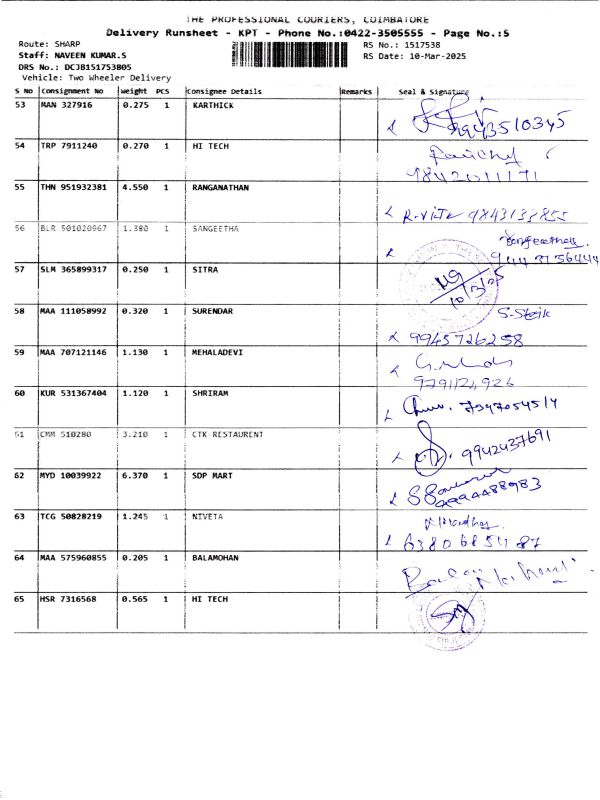 THE PROFESSIONAL COURIERS, COIMBATORE
Delivery Runsheet - KPT - Phone No.:0422-3505555 - Page No.:5
Route: SHARP RS No.: 1517538
Staff: NAVEEN KUMAR.S RS Date: 10-Mar-2025
DRS No.: DCJB151753805
Vehicle: Two Wheeler Delivery
S No Consignment No Weight PCS Consignee Details Remarks Seal & Signature
53 MAN 327916 0.275 1 KARTHICK
9943510345
54 TRP 7911240 0.270 1 HI TECH
9842011171
55 THN 951932381 4.550 1 RANGANATHAN
9843133855
56 BLR 501020967 1.380 1 SANGEETHA
57 SLM 365899317 0.250 1 SITRA
10/3/25
58 MAA 111058992 0.320 1 SURENDAR
9945726258
59 MAA 707121146 1.130 1 MEHALADEVI
9791121926
60 KUR 531367404 1.120 1 SHRIRAM
61 CMM 510280 3.210 1 CTK RESTAURENT
9942437691
62 MYD 10039922 6.370 1 SDP MART
63 TCG 50828219 1.245 1 NIVETA
64 MAA 575960855 0.205 1 BALAMOHAN
65 HSR 7316568 0.565 1 HI TECH